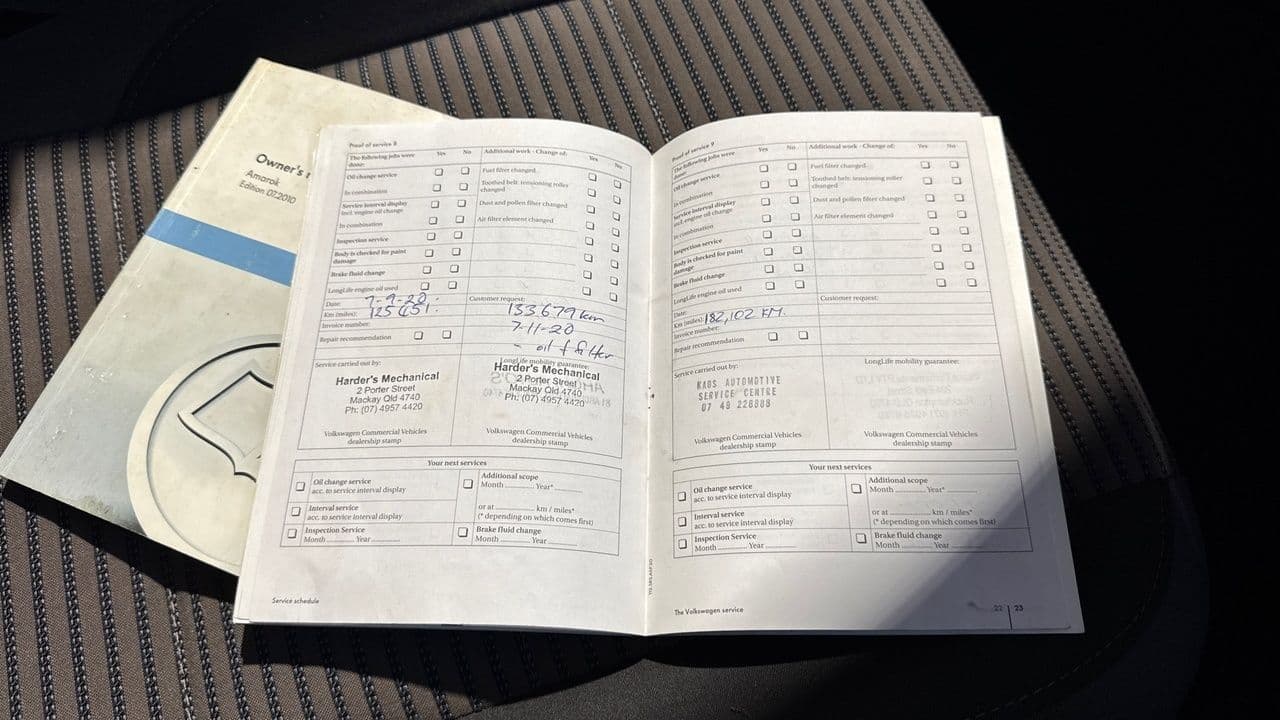 Owner's
Amarok
Edition 07.2010
Proof of service 8
The following jobs were done: Yes No Additional work - Change of: Yes No
Oil change service Fuel filter changed
In combination Toothed belt: tensioning roller changed
Service interval display incl. engine oil change Dust and pollen filter changed
In combination Air filter element changed
Inspection service
Body is checked for paint damage
Brake fluid change
LongLife engine oil used
Date: 7-9-20. Customer request:
Km (miles): 133679 km
Invoice number: 7-11-20
Repair recommendation - oil & filter
Service carried out by: LongLife mobility guarantee:
Harder's Mechanical Harder's Mechanical
2 Porter Street 2 Porter Street
Mackay Qld 4740 Mackay Qld 4740
Ph: (07) 4957 4420 Ph: (07) 4957 4420
Volkswagen Commercial Vehicles Volkswagen Commercial Vehicles
dealership stamp dealership stamp
Your next services
Oil change service Additional scope
acc. to service interval display Month Year*
Interval service or at km / miles*
acc. to service interval display (* depending on which comes first)
Inspection Service Brake fluid change
Month Year Month Year
Service schedule
Proof of service 9
The following jobs were done: Yes No Additional work - Change of: Yes No
Oil change service Fuel filter changed
In combination Toothed belt: tensioning roller changed
Service interval display incl. engine oil change Dust and pollen filter changed
In combination Air filter element changed
Inspection service
Body is checked for paint damage
Brake fluid change
LongLife engine oil used
Date: Customer request:
Km (miles): 182,102 KM.
Invoice number:
Repair recommendation
Service carried out by: LongLife mobility guarantee:
KAOS AUTOMOTIVE
SERVICE CENTRE
07 49 228888
Volkswagen Commercial Vehicles Volkswagen Commercial Vehicles
dealership stamp dealership stamp
Your next services
Oil change service Additional scope
acc. to service interval display Month Year*
Interval service or at km / miles*
acc. to service interval display (* depending on which comes first)
Inspection Service Brake fluid change
Month Year Month Year
The Volkswagen service 22 | 23